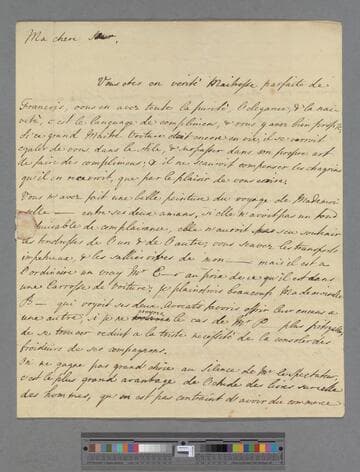 Ma chere Sœur,
Vous etes en verité Maitresse parfaite de
Francois, vous en avez toute la pureté, l'elegance, & la nai-
veté, c'est le langage de complimens, & vous y avez bien profité,
si ce grand Maitre Voiture etoit encore en vie, il se verroit
egalé de vous dans le stile, & surpassé dans son propre art
de faire des complimens; & il ne sauroit compenser les chagrins
qu'il en recevroit, que par le plaisir de vous
Vous m'avez fait une belle peinture du voyage de Mademoi-
selle — entre ses deux amans, si elle n'avoit pas un fond
de complaisance, elle n'auroit seu soutenir
les de l'un & de l'autre; vous savez les transports
& les de mon — mais il est à
l'ordinaire un vray Mr E— au prix de ce qu'il est dans
une Carrosse de Voiture; je plaindrois beaucoup Mademoiselle
B— qui voyoit ses deux Avocats offrir leur encens a
une autre, si je ne le cas de Mr P. plus
de se trouver reduit a la triste necessité de la consoler des
froideurs de ses compagnons.
On ne gagne pas grand chose au Silence de Mr le Spectateur,
c'est le plus grand avantage de l'etude des livres sur celle
des hommes, qu'on est pas contraint d'avoir du commerce